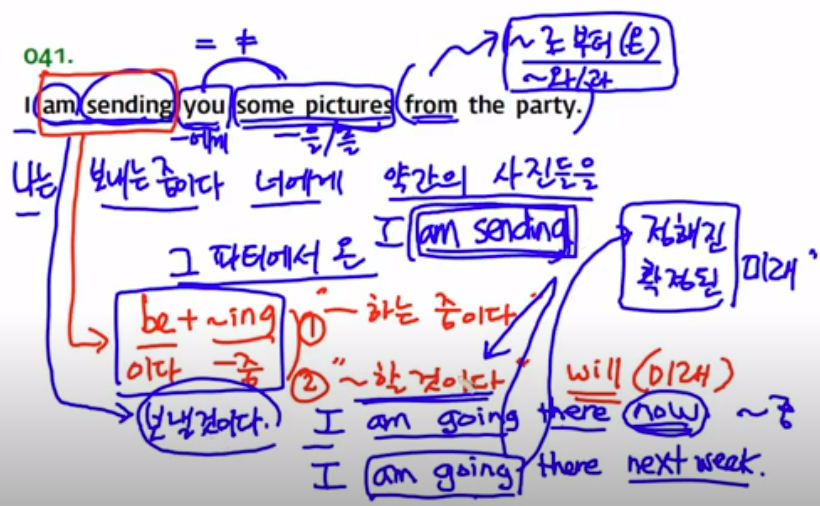 = ≠
~로부터(온)
~와/과
041.
I am sending you some pictures from the party.
-에게 -을/를
나는 보내는 중이다 너에게 약간의 사진들을
I am sending
그 파티에서 온
정해진
확정된 미래
be + ~ing
이다 -중
① "~하는 중이다"
② "~할 것이다"
will (미래)
보낼것이다.
I am going there now ~중
I am going there next week.